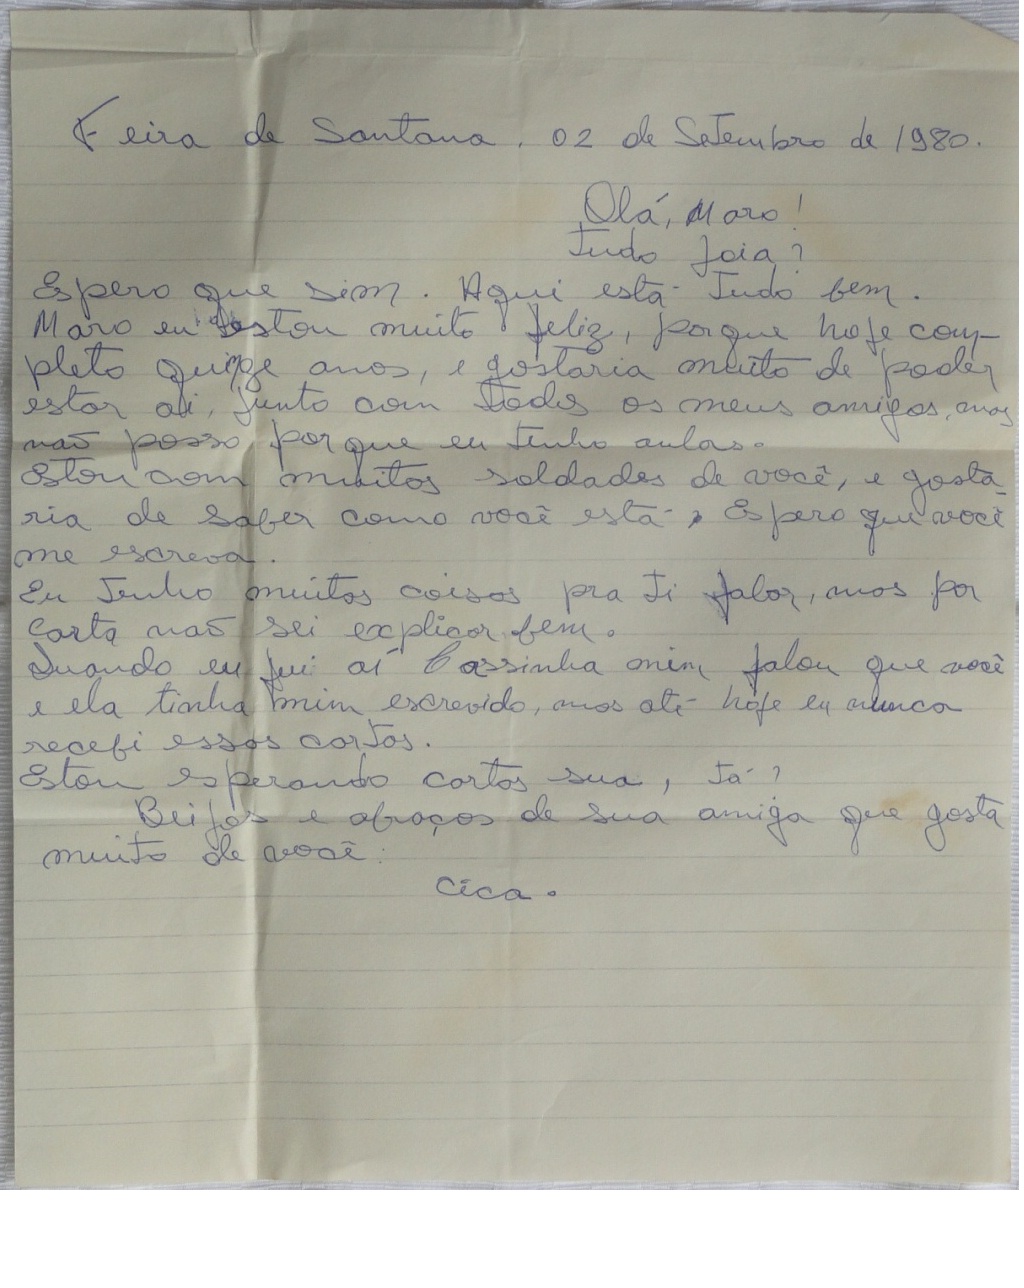 Feira de Santana, 02 de Setembro de 1980.
Olá, Maro!
Tudo Joia?
Espero que sim. Aqui está Tudo bem.
Maro eu estou muito feliz, porque hoje com-
pleto quinze anos, e gostaria muito de poder
estar ai, junto com Todos os meus amigos, mas
não posso porque eu Tenho aulas.
Estou com muitas soldades de você, e gosta
ria de saber como você está, Espero que você
me escreva.
Eu Tenho muitas coisas pra Ti falar, mas por
carta não sei explicar bem.
Quando eu fui aí Cassinha mim falou que você
e ela tinha mim escrevido, mas até hoje eu nunca
recebi essas cartas.
Estou esperando cartas sua, Tá?
Beijos e abraços de sua amiga que gosta
muito de você.
Cica.